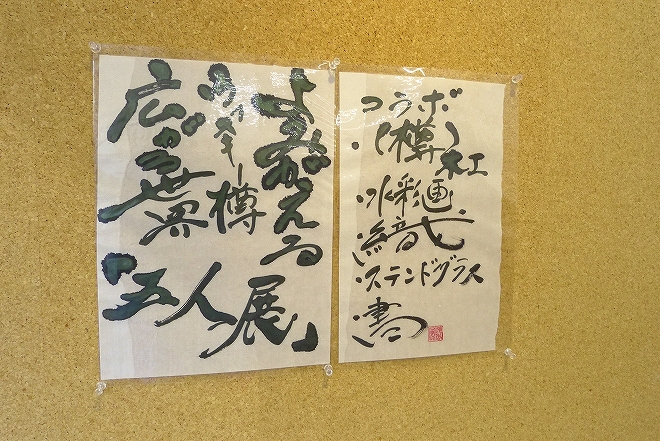 よみがえる
ウイスキー樽
広がる世界
「五人展」
コラボ
・(樽)木工
・水彩画
・織
・ステンドグラス
・書